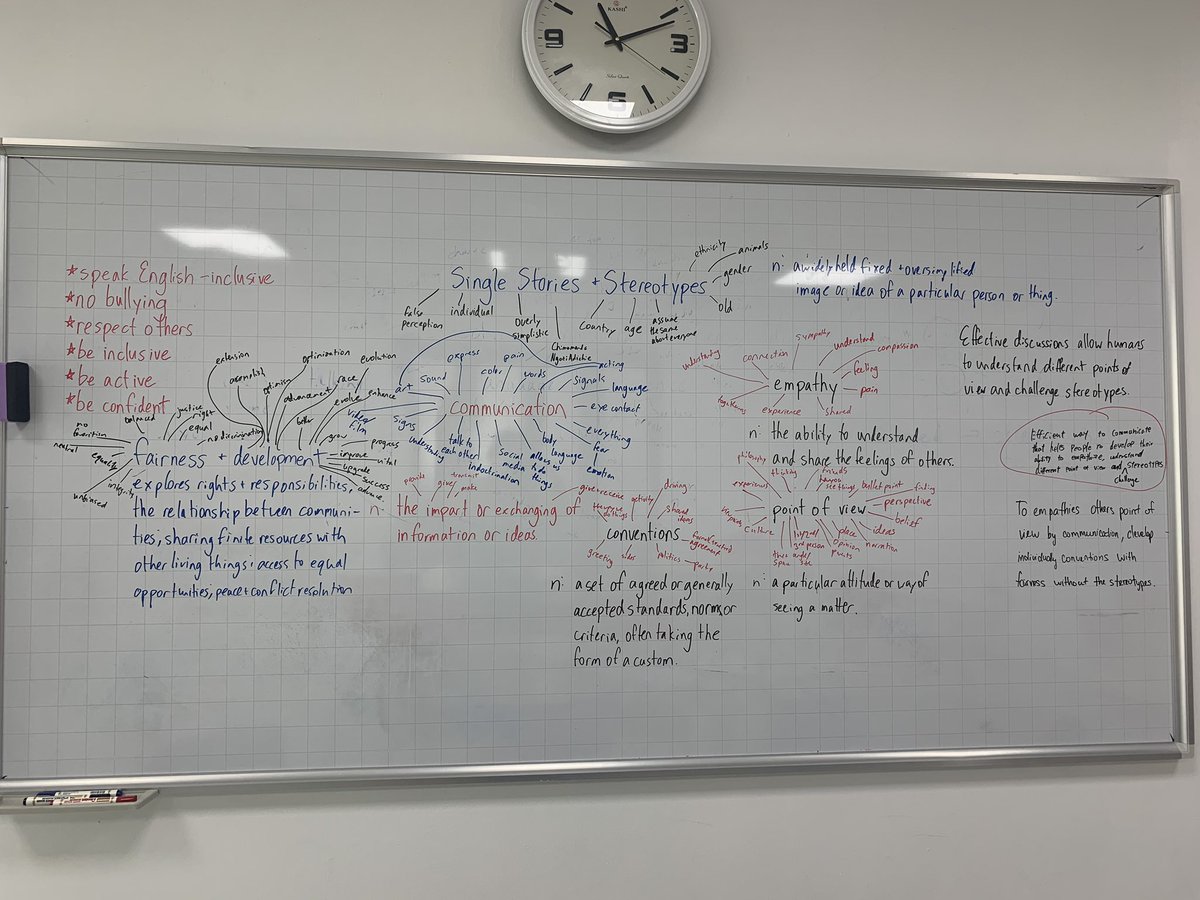 KASHI
9
3
6
*speak English - inclusive
*no bullying
*respect others
*be inclusive
*be active
*be confident
Single Stories + Stereotypes
false
perception
individual
overly
simplistic
Chimamanda
Ngozi Adichie
country
age
assume
the same
about everyone
ethnicity
animals
gender
old
n: a widely held fixed + oversimplified
image or idea of a particular person or thing.
fairness + development
balanced
justice
right
equal
no discrimination
neutral
equality
integrity
unbiased
extension
accomplish
optimism
optimization
advancement
better
race
evolve
evolution
enhance
grow
improve
upgrade
progress
vital
success
advance
explores rights + responsibilities,
the relationship between communi-
ties, sharing finite resources with
other living things; access to equal
opportunities, peace + conflict resolution
communication
art
sound
express
color
pain
words
acting
signals
language
eye contact
everything
fear
emotion
body
language
allow us
to do
things
social
media
indoctrination
talk to
each other
understanding
signs
video/
film
provide
give
transmit
make
n- the impact or exchanging of
information or ideas.
conventions
give + receive
activity
dining
shared
ideas
agreement
party
politics
rules
greeting
n: a set of agreed or generally
accepted standards, norms, or
criteria, often taking the
form of a custom.
empathy
understanding
connection
sympathy
understand
compassion
feeling
pain
shared
experience
togetherness
n: the ability to understand
and share the feelings of others.
point of view
philosophy
thinking
experiences
culture
bullet point
finding
perspective
belief
ideas
narration
place
opinion
3rd person
n: a particular attitude or way of
seeing a matter.
Effective discussions allow humans
to understand different points of
view and challenge stereotypes.
Efficient way to communicate
that helps people to develop their
ability to empathize, understand
different point of view and stereotypes
challenge
To empathies others point of
view by communication, develop
individually conventions with
fairness without the stereotypes.